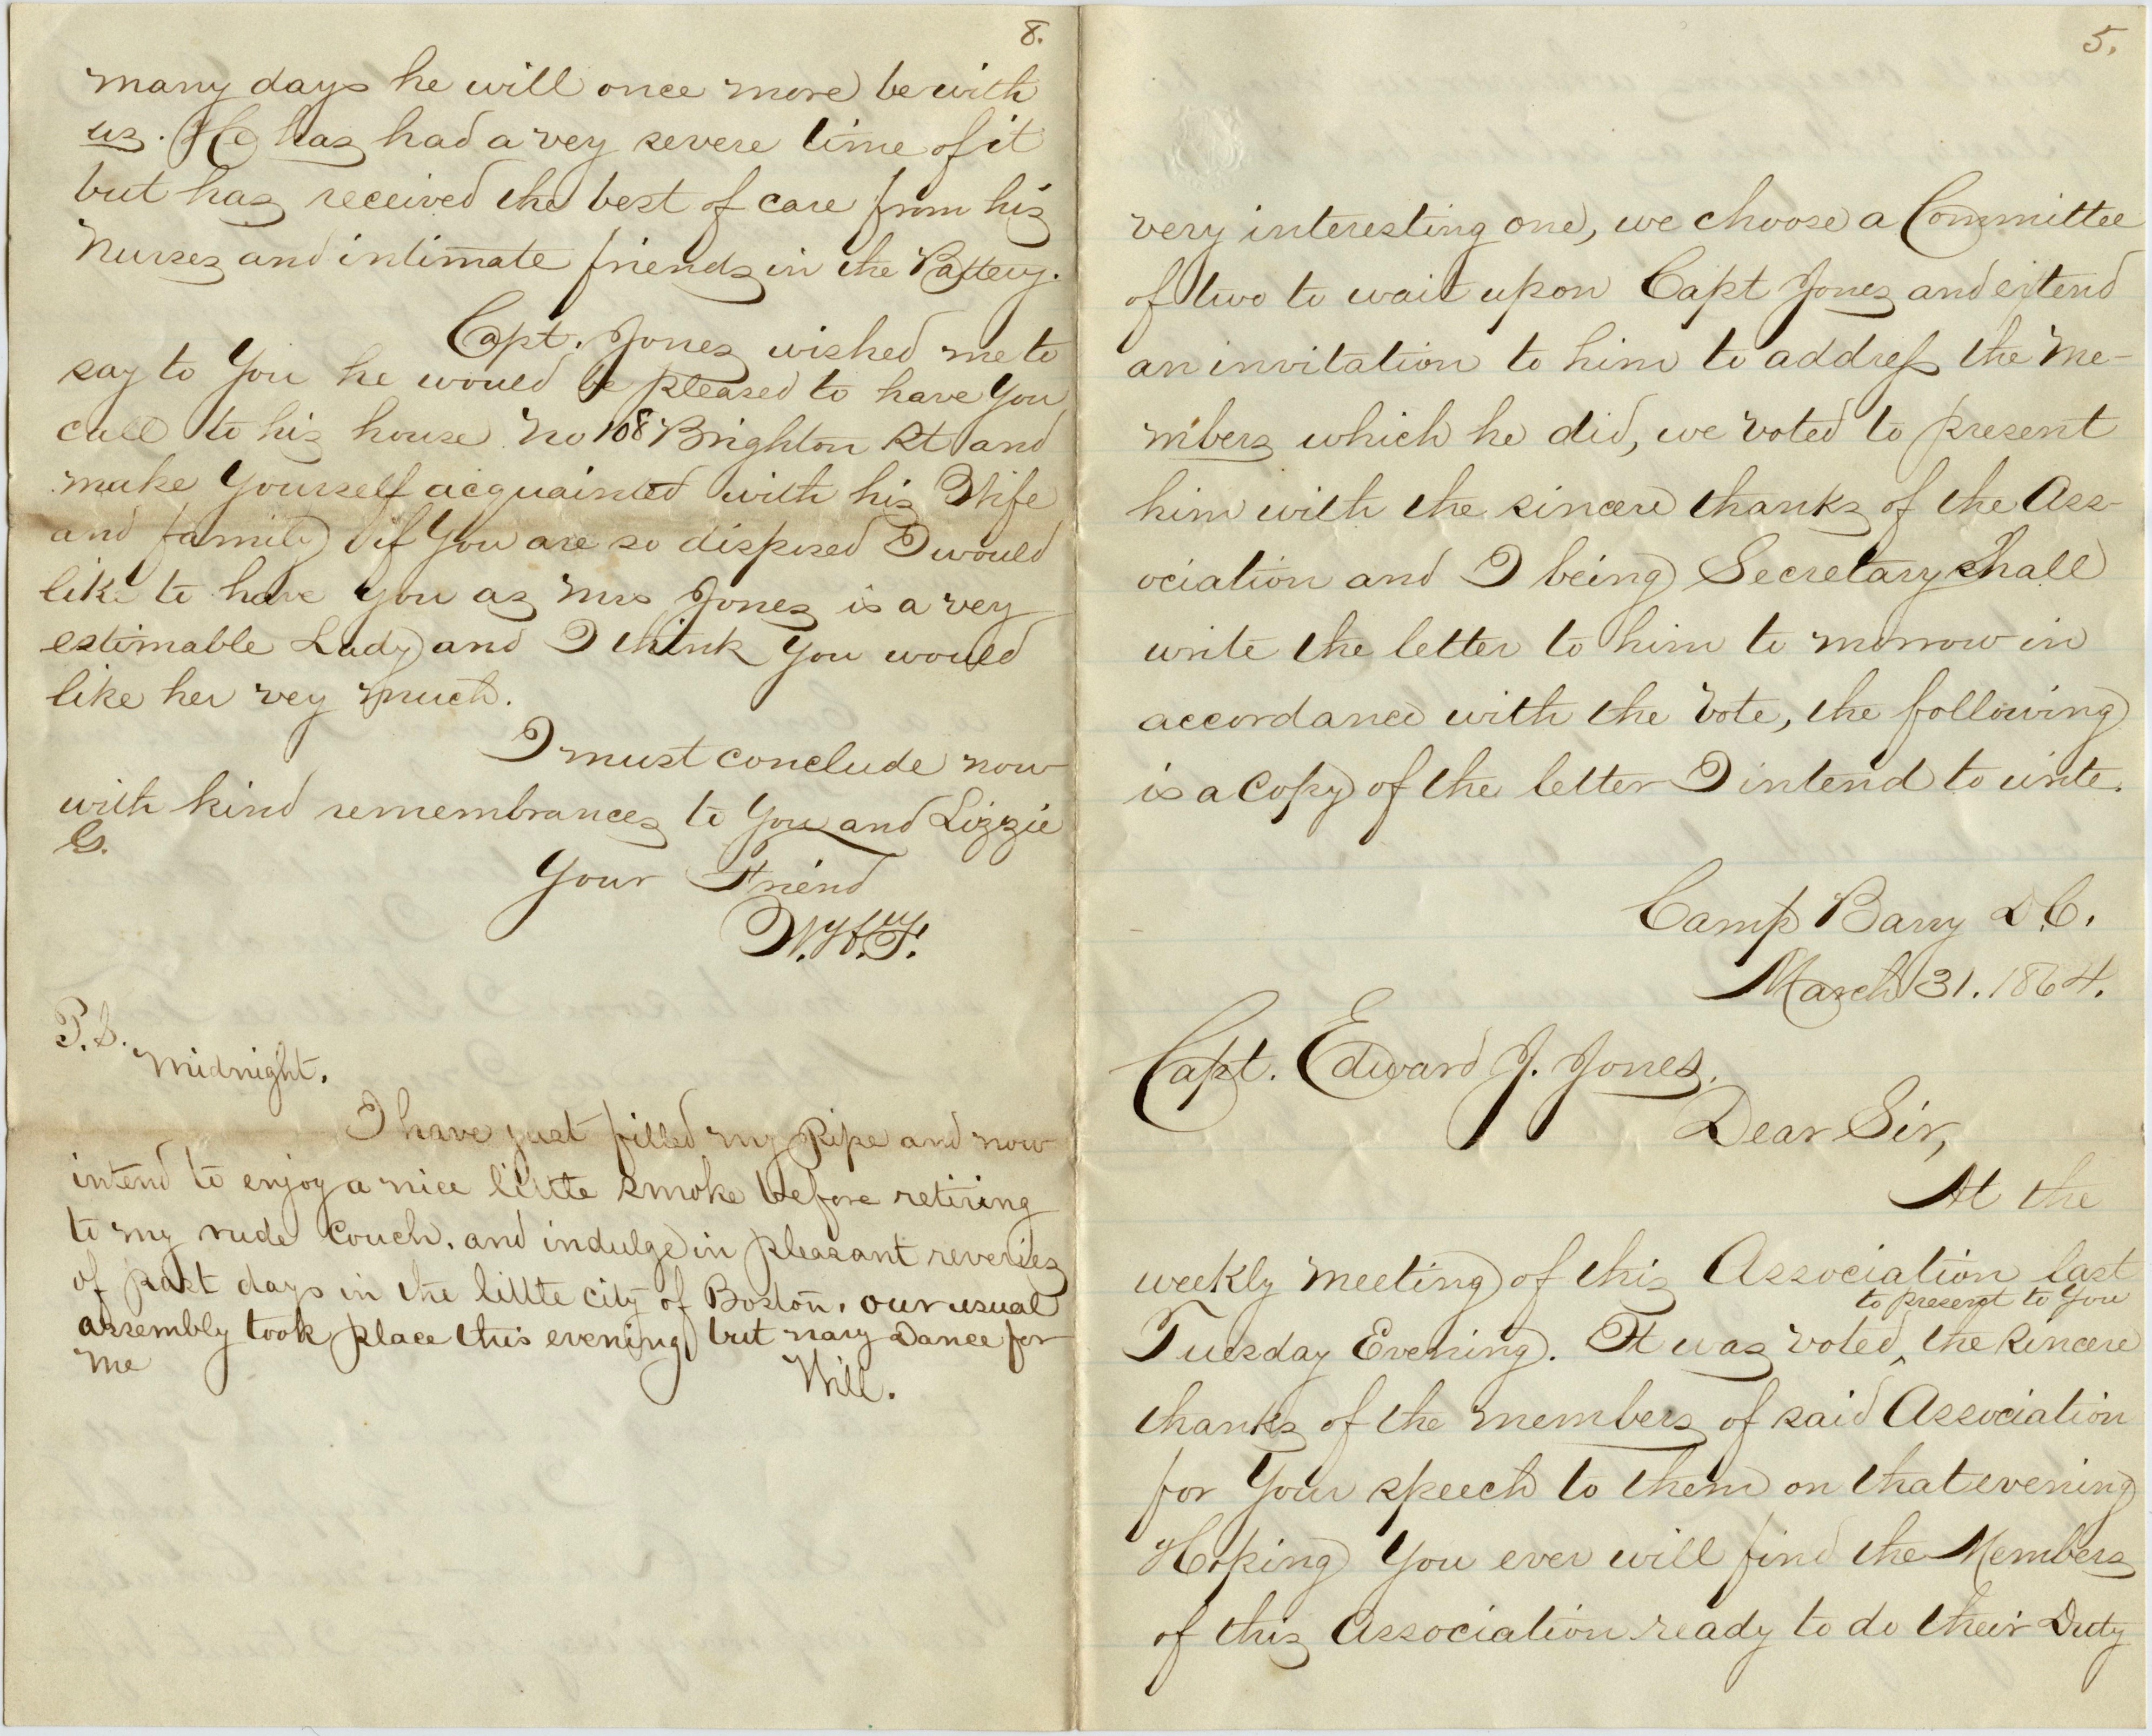 8.
many days he will once more be with
us. He has had a vey severe time of it
but has received the best of care from his
Nurses and intimate friends in the Battery.
Capt. Jones wished me to
say to You he would be pleased to have You
call to his house No 108 Brighton St and
make Yourself acquainted with his Wife
and family if You are so disposed I would
like to have You as Mrs Jones is a vey
estimable Lady and I think You would
like her vey much.
I must conclude now
with kind remembrances to You and Lizzie
G.
Your Friend
P.S.
Midnight.
I have just filled my Pipe and now
intend to enjoy a nice little smoke before retiring
to my rude Couch. and indulge in pleasant reveries
of past days in the little city of Boston. our usual
assembly took place this evening but nary Dance for
me
Will.
5.
very interesting one, we choose a Committee
of two to wait upon Capt Jones and extend
an invitation to him to address the Me-
mbers which he did, we voted to present
him with the sincere thanks of the Ass-
ociation and I being Secretary shall
write the letter to him to morrow in
accordance with the Vote, the following
is a Copy of the letter I intend to write.
Camp Barry D.C.
March 31. 1864.
Capt. Edward J. Jones.
Dear Sir,
At the
weekly Meeting of this Association last
to present to You
Tuesday Evening. It was voted ^ the sincere
thanks of the members of said Association
for Your speech to them on that evening
Hoping You ever will find the Members
of this Association ready to do their Duty